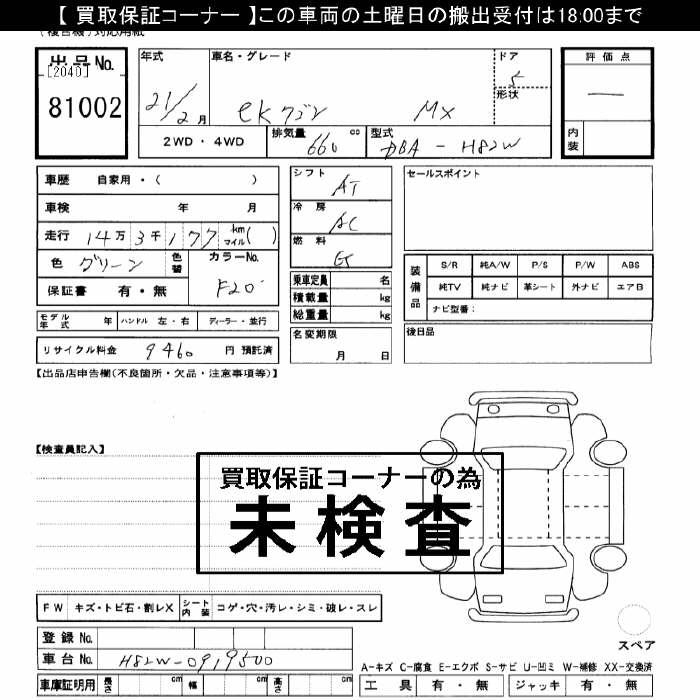 【 買取保証コーナー 】この車両の土曜日の搬出受付は18:00まで
出品No.
[2040]
81002
年式
21/2月
車名・グレード
ekワゴン MX
ドア
5
形状
評価点
—
内装
2WD・4WD
排気量
660
cc
型式
DBA-H82W
車歴 自家用・( )
車検 年 月
走行 14万3千177 km マイル( )
色 グリーン
色替
カラーNo.
F20
保証書 有・無
シフト
AT
冷房
AC
燃料
乗車定員 名
積載量 kg
総重量 kg
セールスポイント
装備品
S/R 純A/W P/S P/W ABS
純TV 純ナビ 革シート 外ナビ エアB
ナビ型番:
モデル年式 年 ハンドル 左・右 ディーラー・並行
リサイクル料金 9460 円 預託済
名変期限
月 日
後日品
【出品店申告欄(不良箇所・欠品・注意事項等)】
【検査員記入】
買取保証コーナーの為
未検査
FW キズ・トビ石・割レX シート内装 コゲ・穴・汚レ・シミ・破レ・スレ
登録No.
車台No. H82W-0919500
車庫証明用 長さ cm 幅 cm 高さ cm
スペア
A-キズ C-腐食 E-エクボ S-サビ U-凹ミ W-補修 XX-交換済
工具 有・無 ジャッキ 有・無